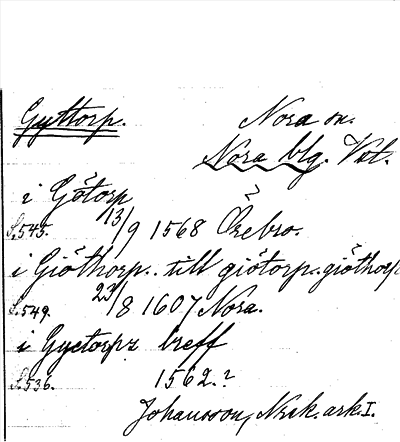 Gyttorp. Nora sn.
Nora blg. Vstl.
i Götorp
S.545. 13/9 1568 Örebro.
i Giöthorp.. till giötorp. giöthorp
S.549. 23/8 1607 Nora.
i Gyetorpz breff
S.536. 1562.?
Johansson, Nrk. ark. I.